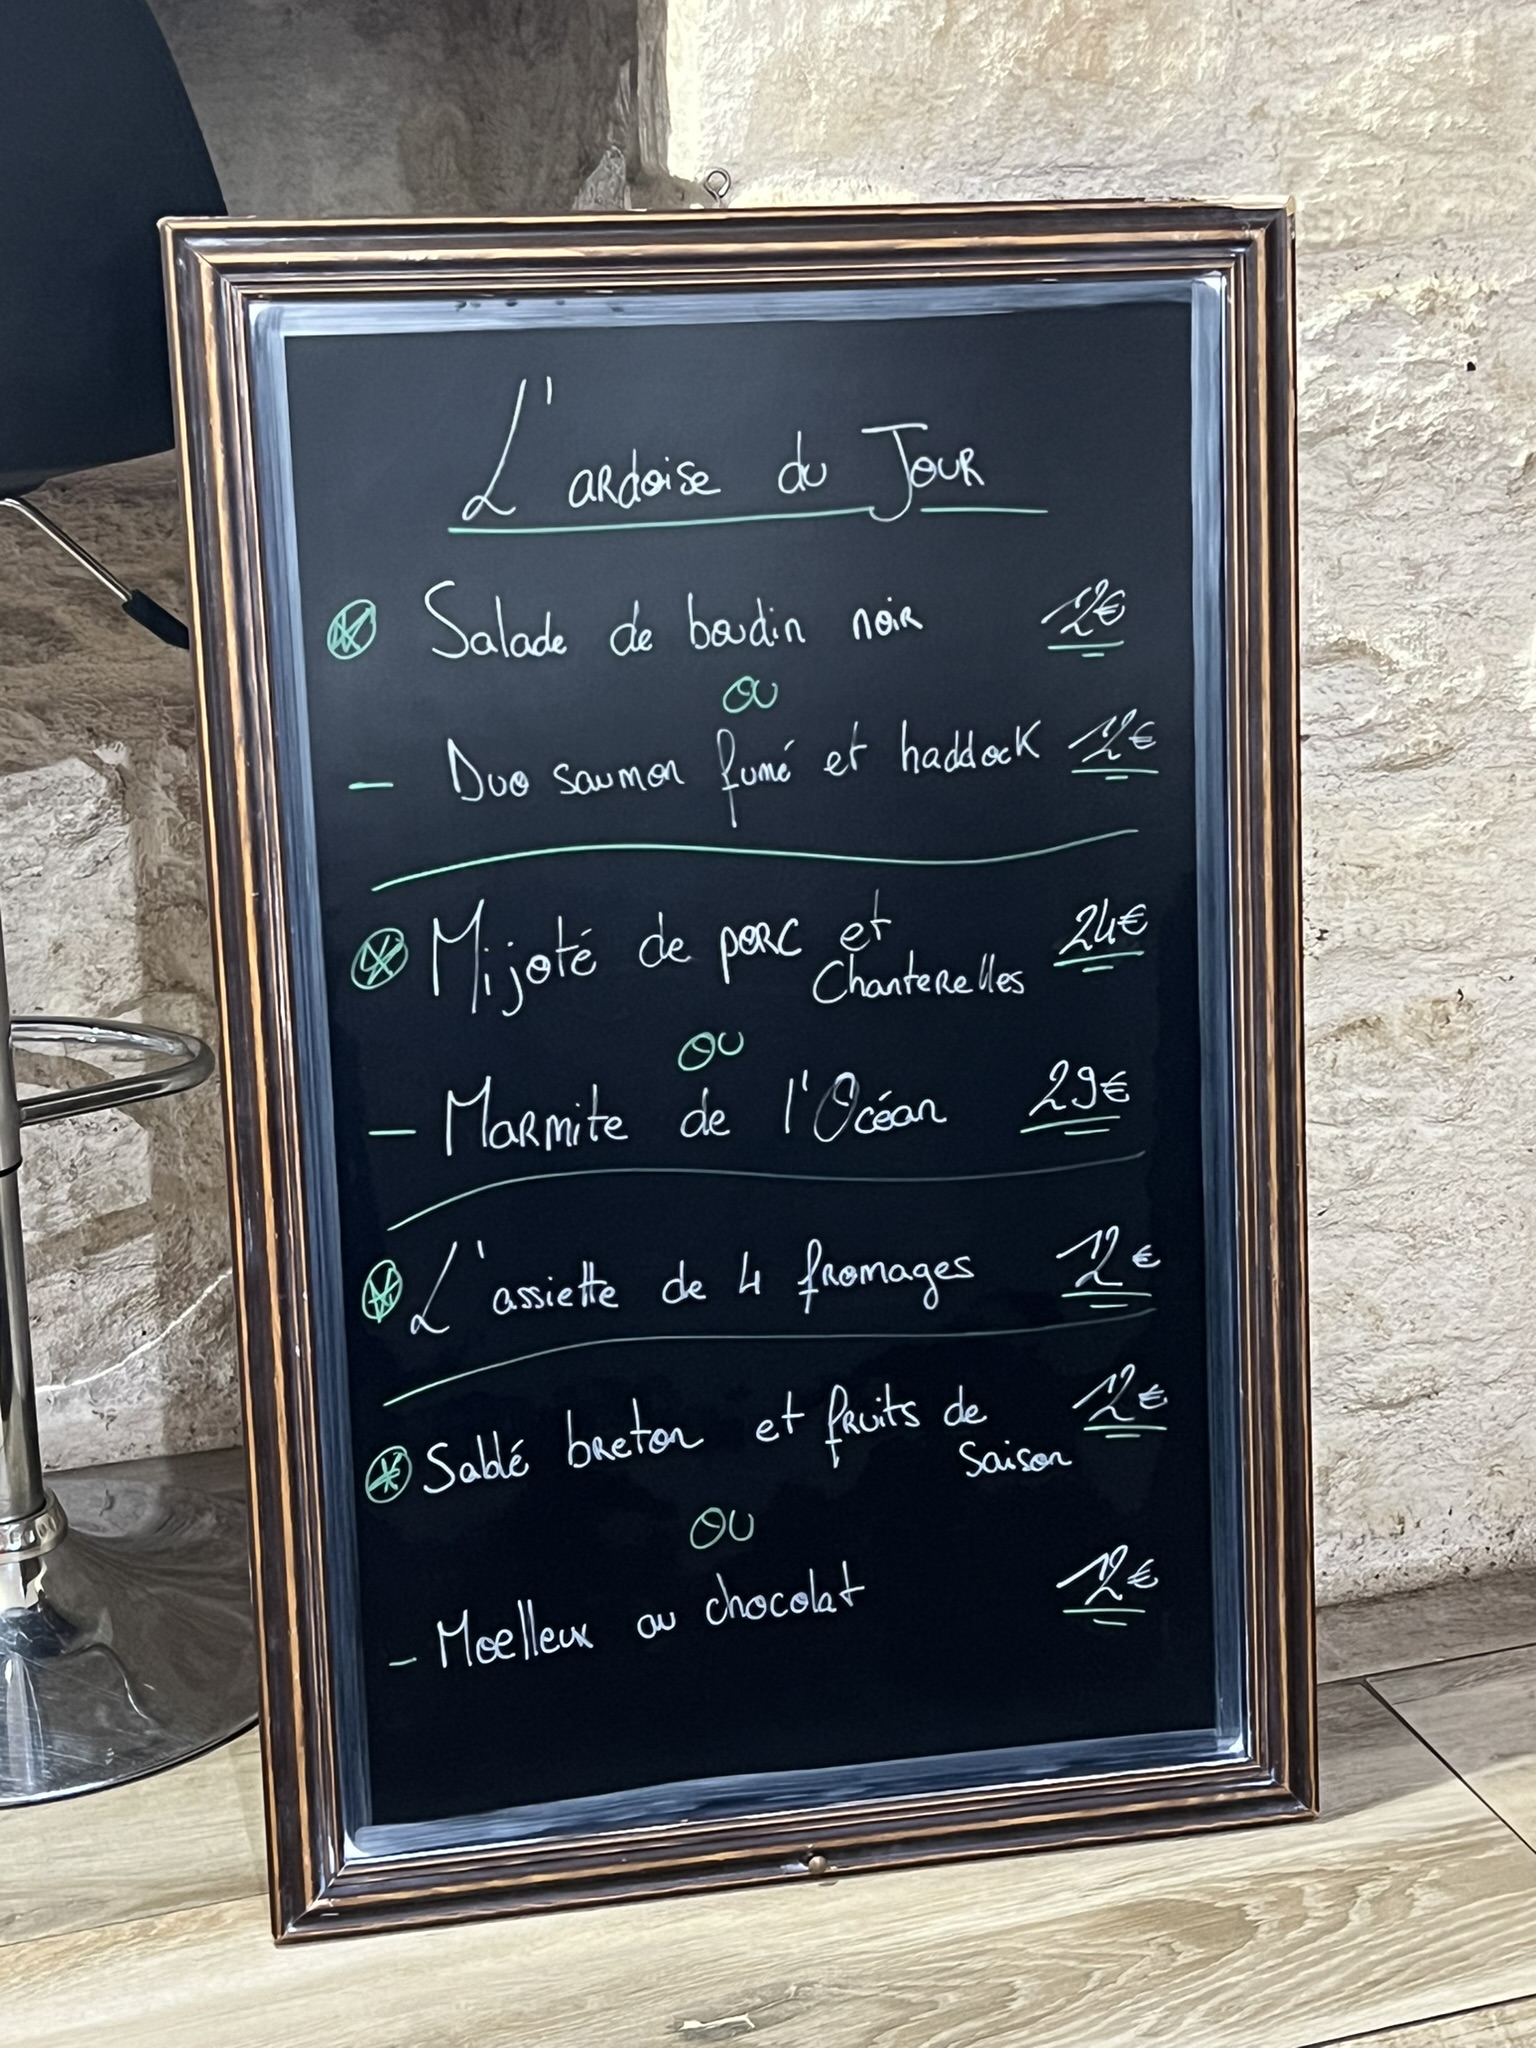 L'ardoise du Jour
Salade de boudin noir 12€
ou
- Duo saumon fumé et haddock 12€
Mijoté de porc et 24€
Chanterelles
ou
- Marmite de l'Océan 29€
L'assiette de 4 fromages 12€
Sablé breton et fruits de 12€
saison
ou
- Moelleux au chocolat 12€